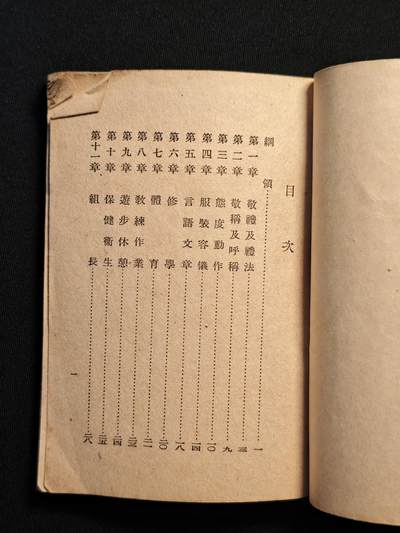 目次
綱領 一
第一章 敬禮及禮法 三
第二章 敬稱及呼稱 九
第三章 態度動作 一〇
第四章 服裝容儀 一四
第五章 言語文章 一八
第六章 修學 二〇
第七章 體育
第八章 教練作業 二三
第九章 遊步休憩 二四
第十章 保健衞生 二五
第十一章 組長 二八
一